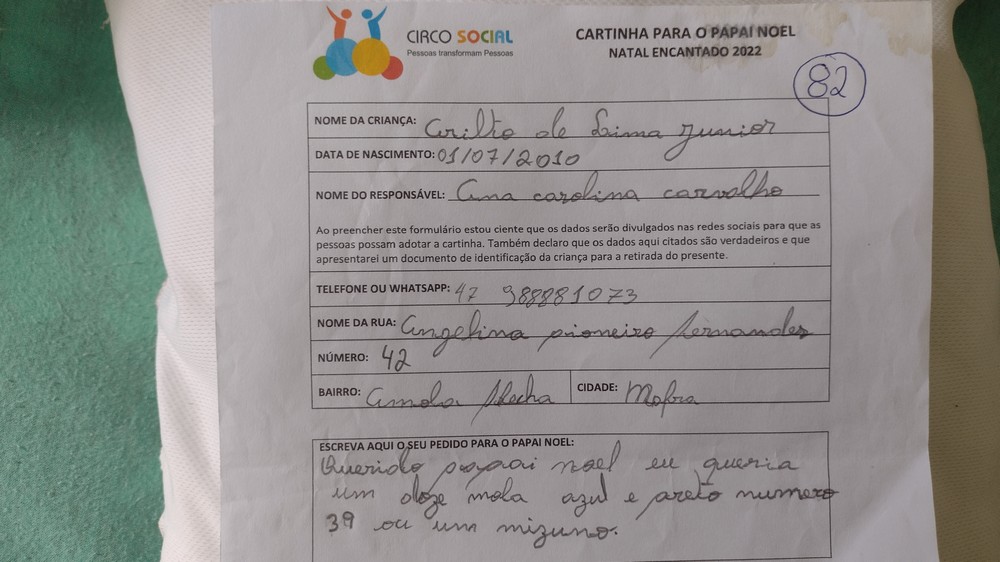 CIRCO SOCIAL
Pessoas transformam Pessoas
CARTINHA PARA O PAPAI NOEL
NATAL ENCANTADO 2022
82
NOME DA CRIANÇA: Arilto de Lima Junior
DATA DE NASCIMENTO: 01/07/2010
NOME DO RESPONSÁVEL: Ana carolina carvalho
Ao preencher este formulário estou ciente que os dados serão divulgados nas redes sociais para que as
pessoas possam adotar a cartinha. Também declaro que os dados aqui citados são verdadeiros e que
apresentarei um documento de identificação da criança para a retirada do presente.
TELEFONE OU WHATSAPP: 47 988881073
NOME DA RUA: Angelina pioneiro fernandes
NÚMERO: 42
BAIRRO: Amola flecha CIDADE: Mafra
ESCREVA AQUI O SEU PEDIDO PARA O PAPAI NOEL:
Querido papai noel eu queria
um doze mola azul e preto numero
39 ou um mizuno.